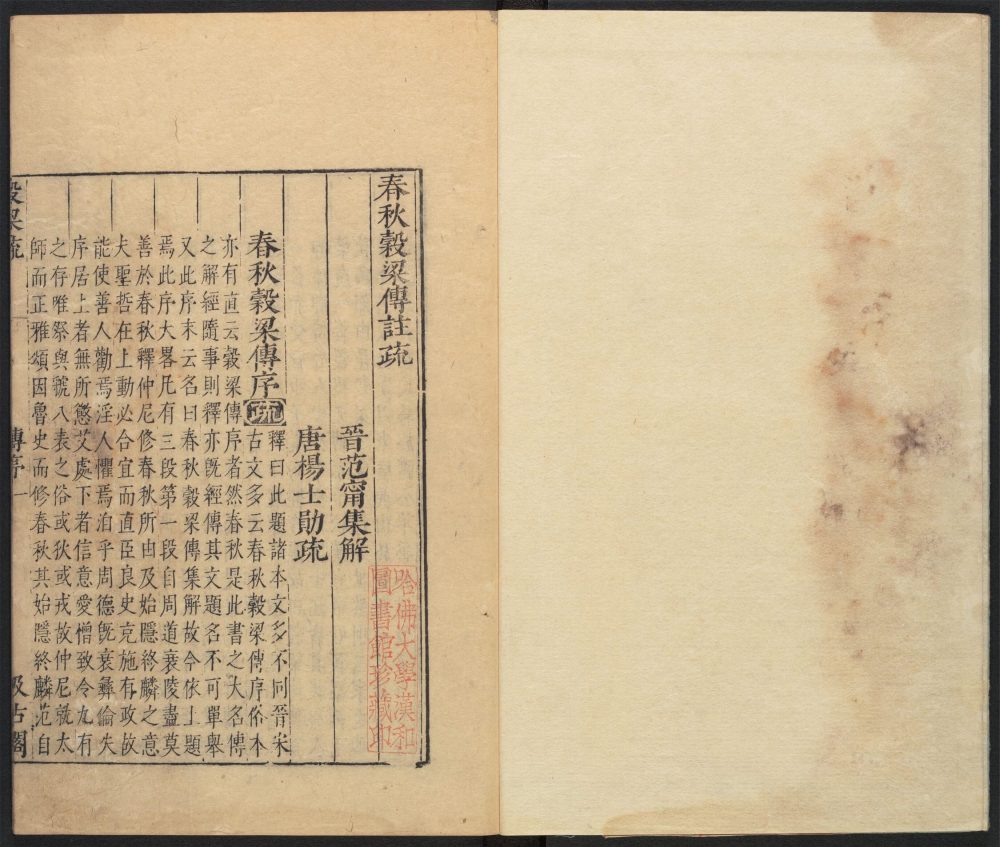 春秋穀梁傳註疏
晉范甯集解
唐楊士勛疏
春秋穀梁傳序疏釋曰此題諸本文多不同晉宋
古文多云春秋穀梁傳序俗本
亦有直云穀梁傳序者然春秋是此書之大名傳
之解經隨事則釋亦旣經傳其文題名不可單舉
又此序末云名曰春秋穀梁傳集解故今依上題
焉此序大畧凡有三段第一段自周道衰陵盡莫
善於春秋釋仲尼修春秋所由及始隱終麟之意
夫聖哲在上動必合宜而直臣良史克施有政故
能使善人勸焉淫人懼焉洎乎周德旣衰彝倫失
序居上者無所懲艾處下者信意愛憎致令九有
之存唯祭與號八表之俗或狄或戎故仲尼就太
師而正雅頌因魯史而修春秋其始隱終麟范自
穀梁疏
傳序
一
汲古閣
哈佛大學漢和
圖書館珍藏印